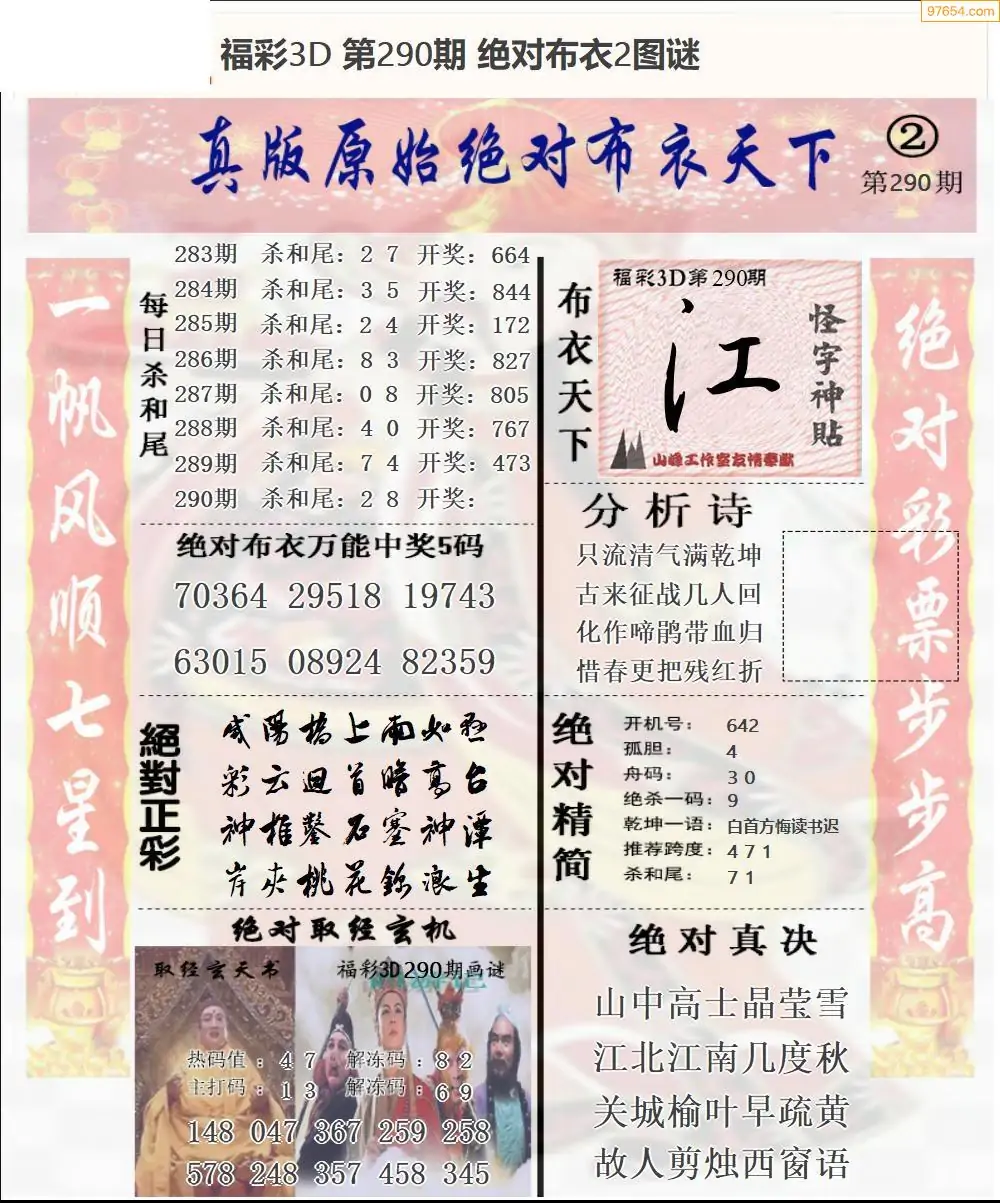 97654.com
福彩3D 第290期 绝对布衣2图谜
真版原始绝对布衣天下
②
第290期
一帆风顺七星到
每日杀和尾
283期 杀和尾：2 7 开奖：664
284期 杀和尾：3 5 开奖：844
285期 杀和尾：2 4 开奖：172
286期 杀和尾：8 3 开奖：827
287期 杀和尾：0 8 开奖：805
288期 杀和尾：4 0 开奖：767
289期 杀和尾：7 4 开奖：473
290期 杀和尾：2 8 开奖：
绝对布衣万能中奖5码
70364 29518 19743
63015 08924 82359
絕對正彩
咸阳桥上雨如悬
彩云回首暗高台
神椎凿石塞神潭
岸夹桃花锦浪生
绝对取经玄机
取经玄天书
福彩3D290期画谜
热码值：4 7 解冻码：8 2
主打码：1 3 解冻码：6 9
148 047 367 259 258
578 248 357 458 345
布衣天下
福彩3D第290期
江
怪字神貼
山峰工作室友情奉献
分析诗
只流清气满乾坤
古来征战几人回
化作啼鹃带血归
惜春更把残红折
绝对精简
开机号： 642
孤胆： 4
舟码： 3 0
绝杀一码：9
乾坤一语：白首方悔读书迟
推荐跨度：4 7 1
杀和尾： 7 1
绝对真决
山中高士晶莹雪
江北江南几度秋
关城榆叶早疏黄
故人剪烛西窗语
绝对彩票步步高